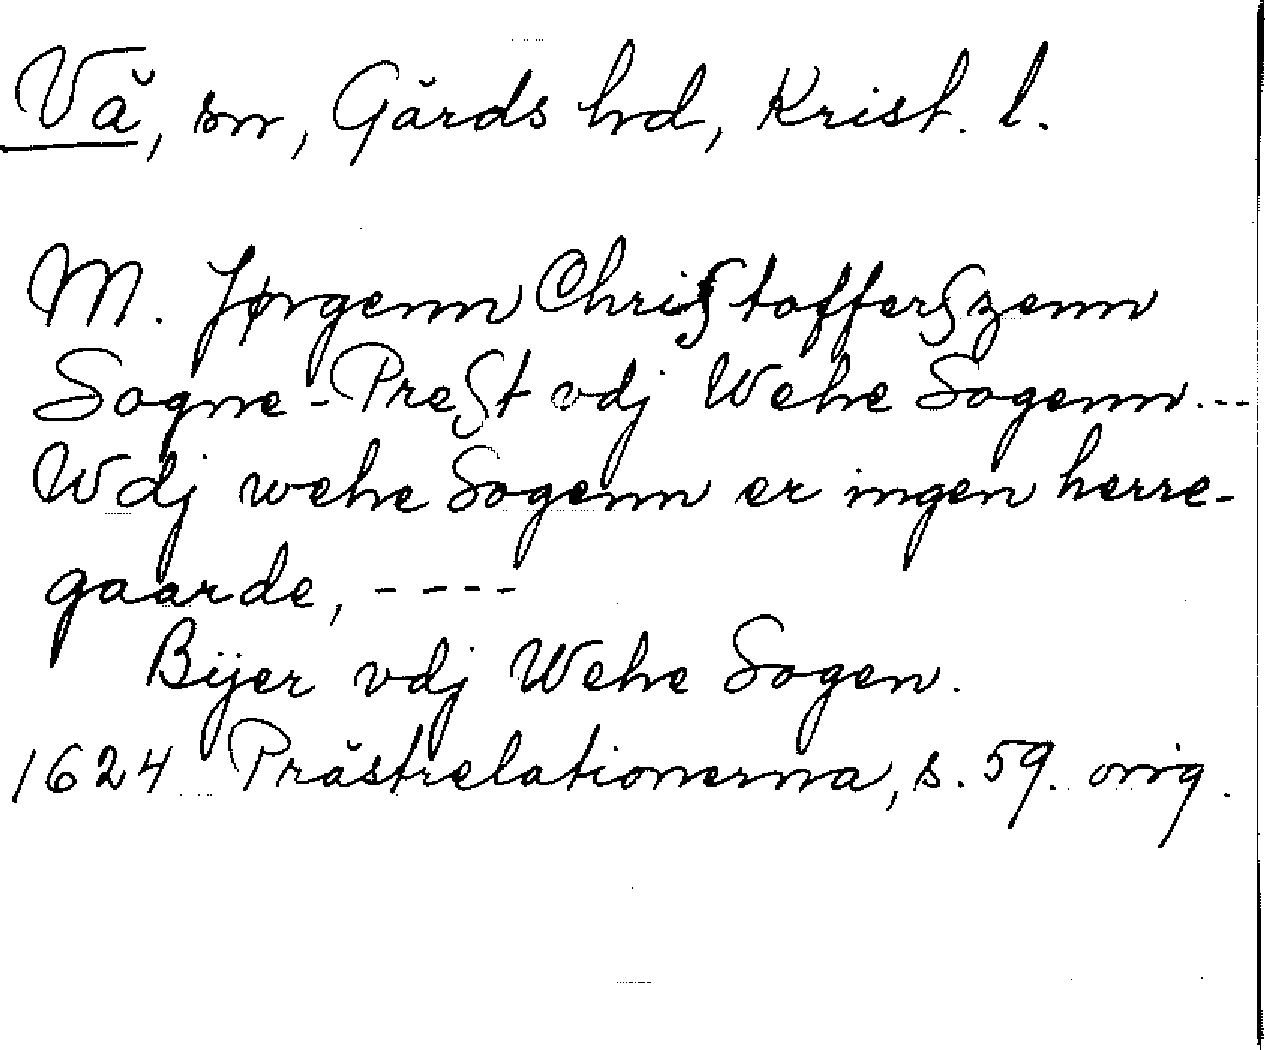 Vä, sn, Gärds hd, Krist. l.
M. Jørgenn Chriſtofferſzenn
Sogne-Preſt vdj Wehe Sogenn...
Wdj wehe Sogenn er ingen herre-
gaarde, ----
Bÿer vdj Wehe Sogen.
1624 Prästrelationerna, s. 59. orig.